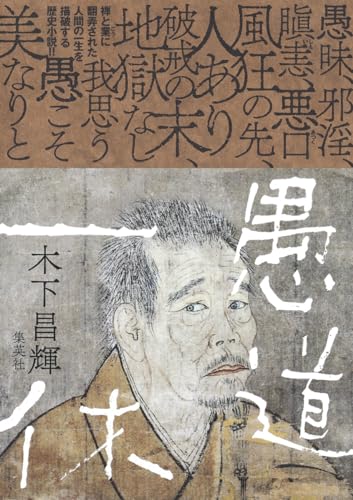 愚昧、邪淫、
瞋恚、悪口
風狂の先、
人あり
破戒の末、
地獄なし
我思う
愚こそ
美なりと
禅と業に
翻弄された
人間の一生を
描破する
歴史小説!!
愚道
一休
木下昌輝
集英社